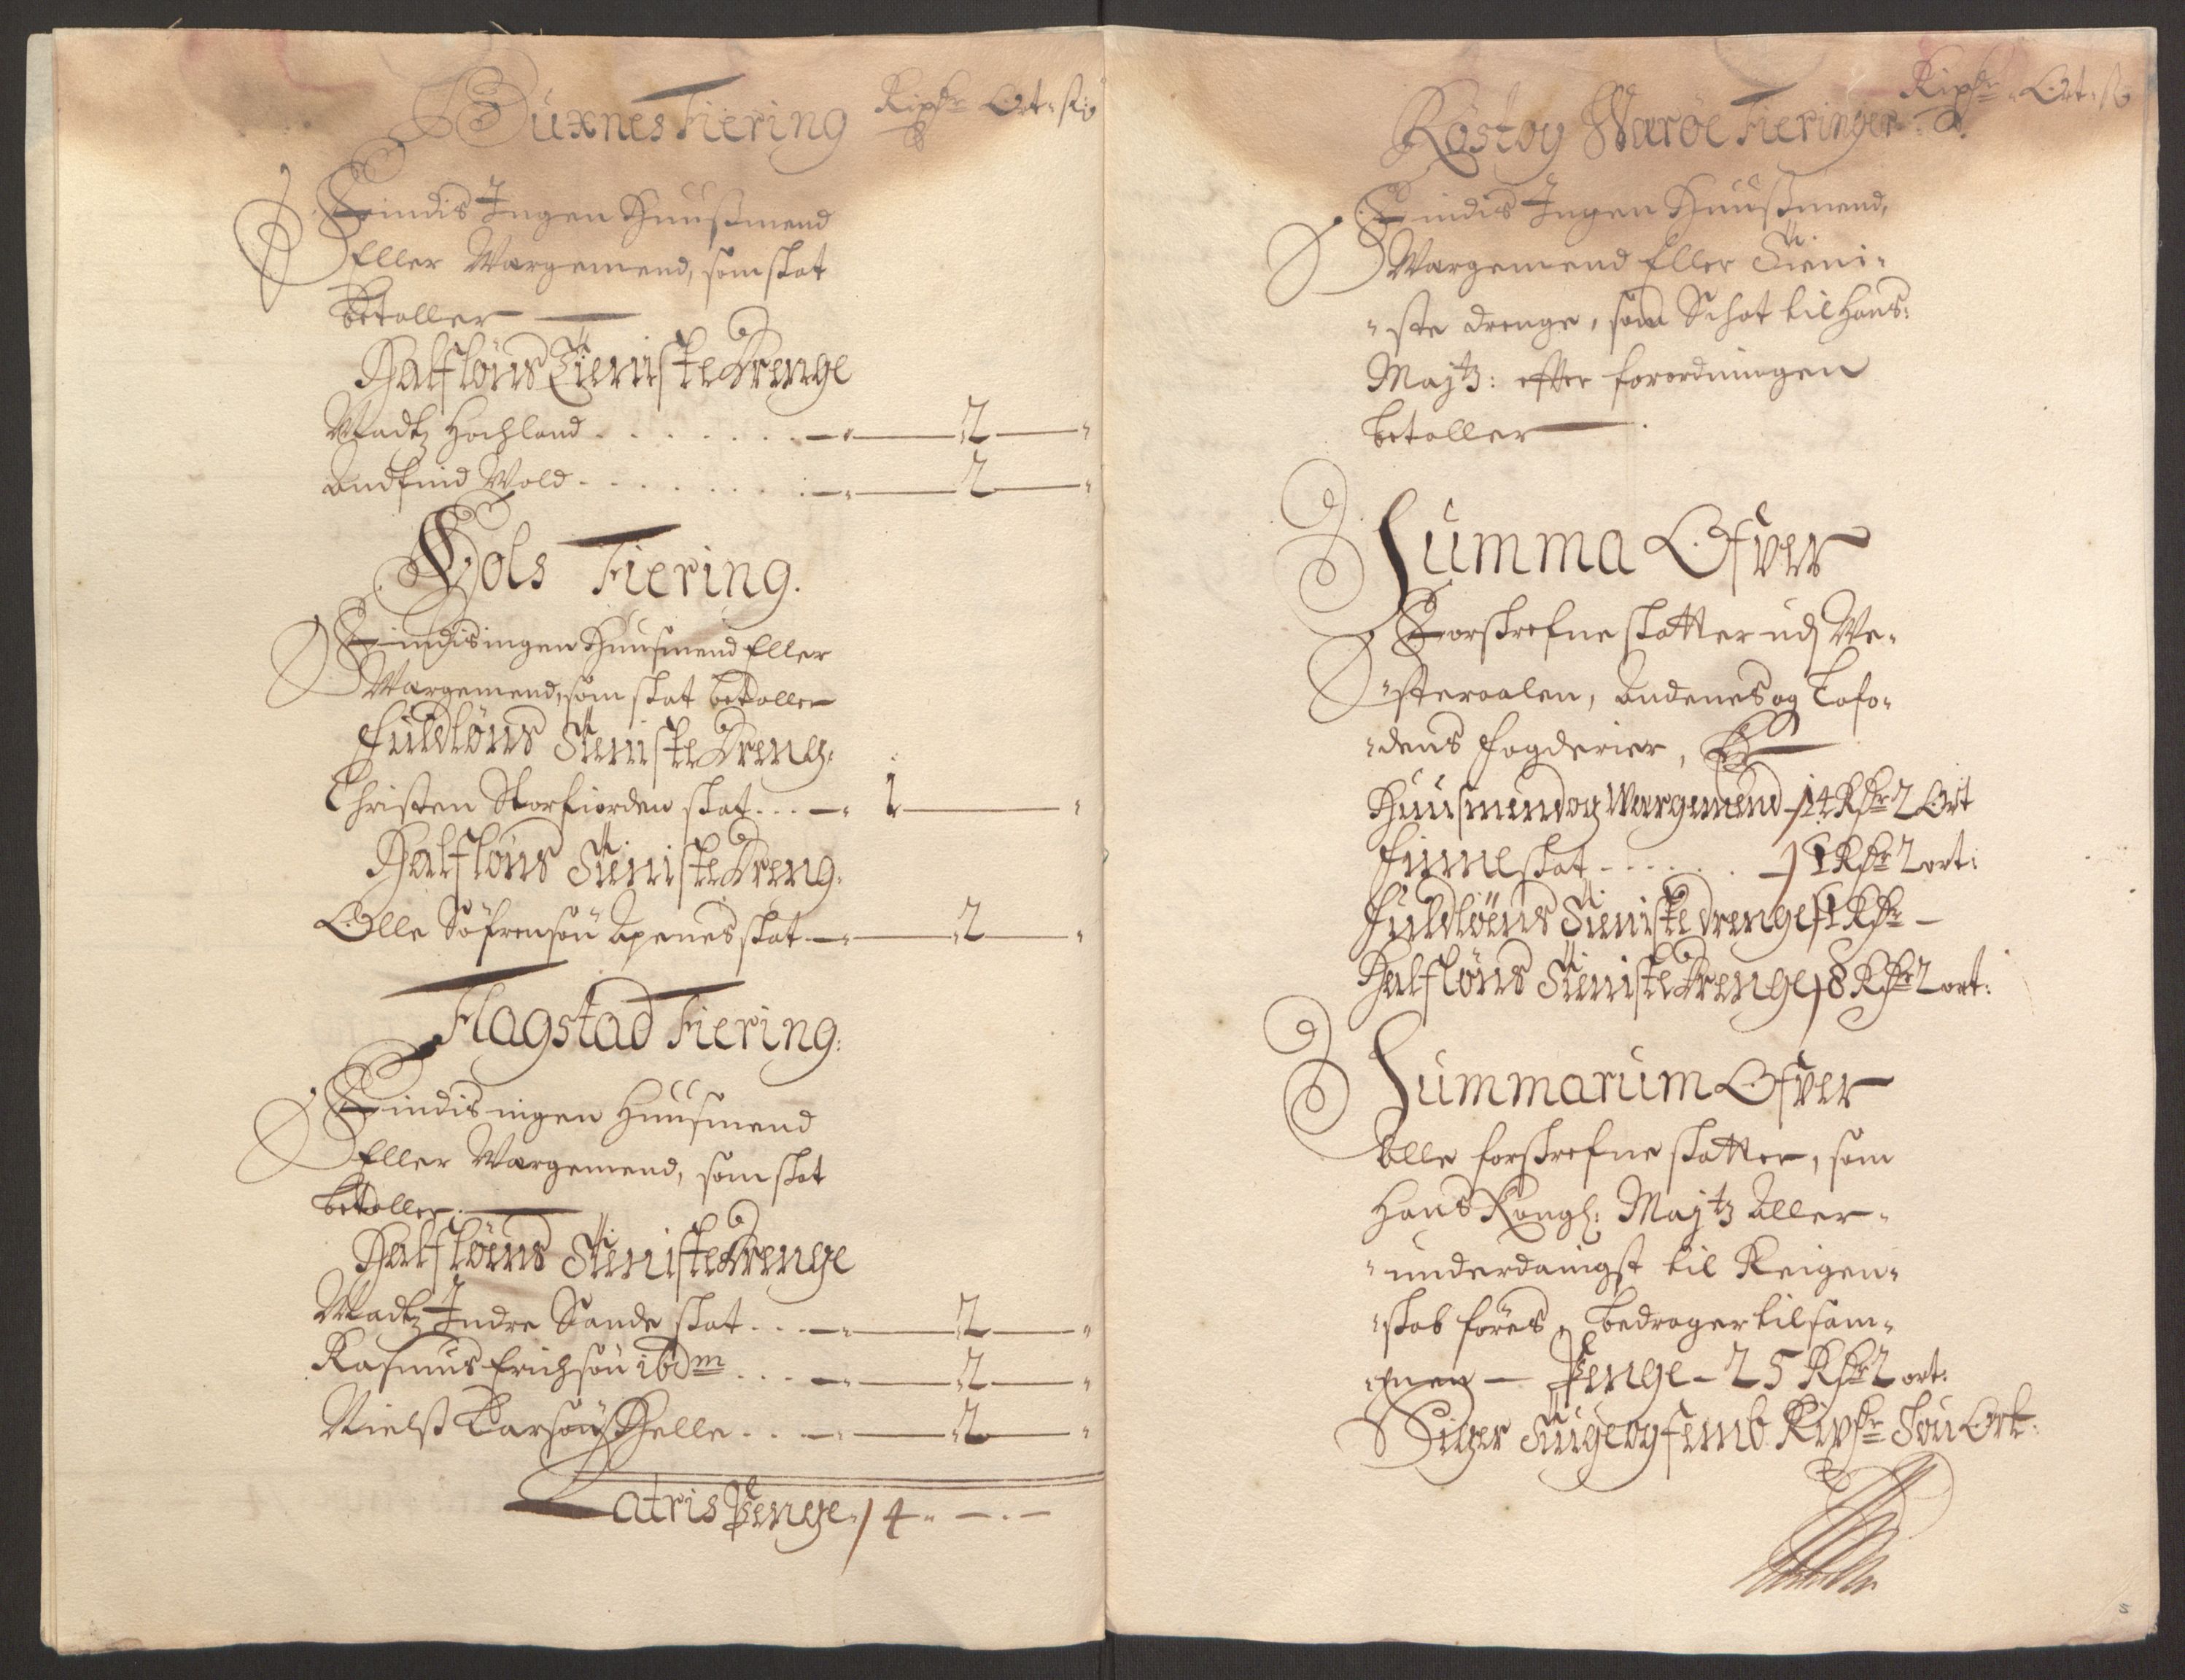 Buxnes Fiering Ripdr Ort. sk:
Findis Ingen Huusmend
Eller Wargemend, som skat
betaller
Halfløns Tieniste Drenge
Madtz Hochland . . . . . . . — 2 —
Andfind Wold . . . . . . . — 2 —
Hols Fiering.
Findis ingen Huusmend Eller
Wargemend, som skat betaller
Fuldløns Tieniste Dreng:
Christen Storfiorden skat . . . — 1 —
Halfløns Tieniste Dreng.
Olle Søfrensøn Apenes skat — 2 —
Flagstad Fiering:
Findis ingen Huusmend
Eller Wargemend, som skat
betaller.
Halfløens Tieniste Drenge
Madtz Indre Sande skat . . . — 2 —
Rasmus Erichsøn ibdm . . . — 2 —
Nielss Larsøn Helle . . . — 2 —
Latris Penge. 4 - — . —
Røst og Værøe Fieringer. Ripdr Ort. sk
Findis Ingen Huusmend,
Wargemend Eller Tieni-
ste drenge, som Schat til Hans:
Maytz: efter forordningen
betaller
Summa Ofver
Forskrefne skatter udj We-
steraalen, Andenes og Lofo-
dens fogderier, Er
Huusmend og Wargemend — 14 Rdr 2 Ort
Finneskat . . . . . . — 1 Rdr 2 ort:
Fuldløens Tieniste drenge 1 Rdr —
Halfløns Tieniste Drenge 8 Rdr 2 ort:
Summarum Ofver
Alle forskrefne skatter, som
Hans Kongl: Maytz Aller-
underdanigst til Reigen-
skab føres, bedrager tilsam-
men — Penge - 25 Rdr 2 ort:
Siger Tiuge og femb Ripdr Tou Ort: